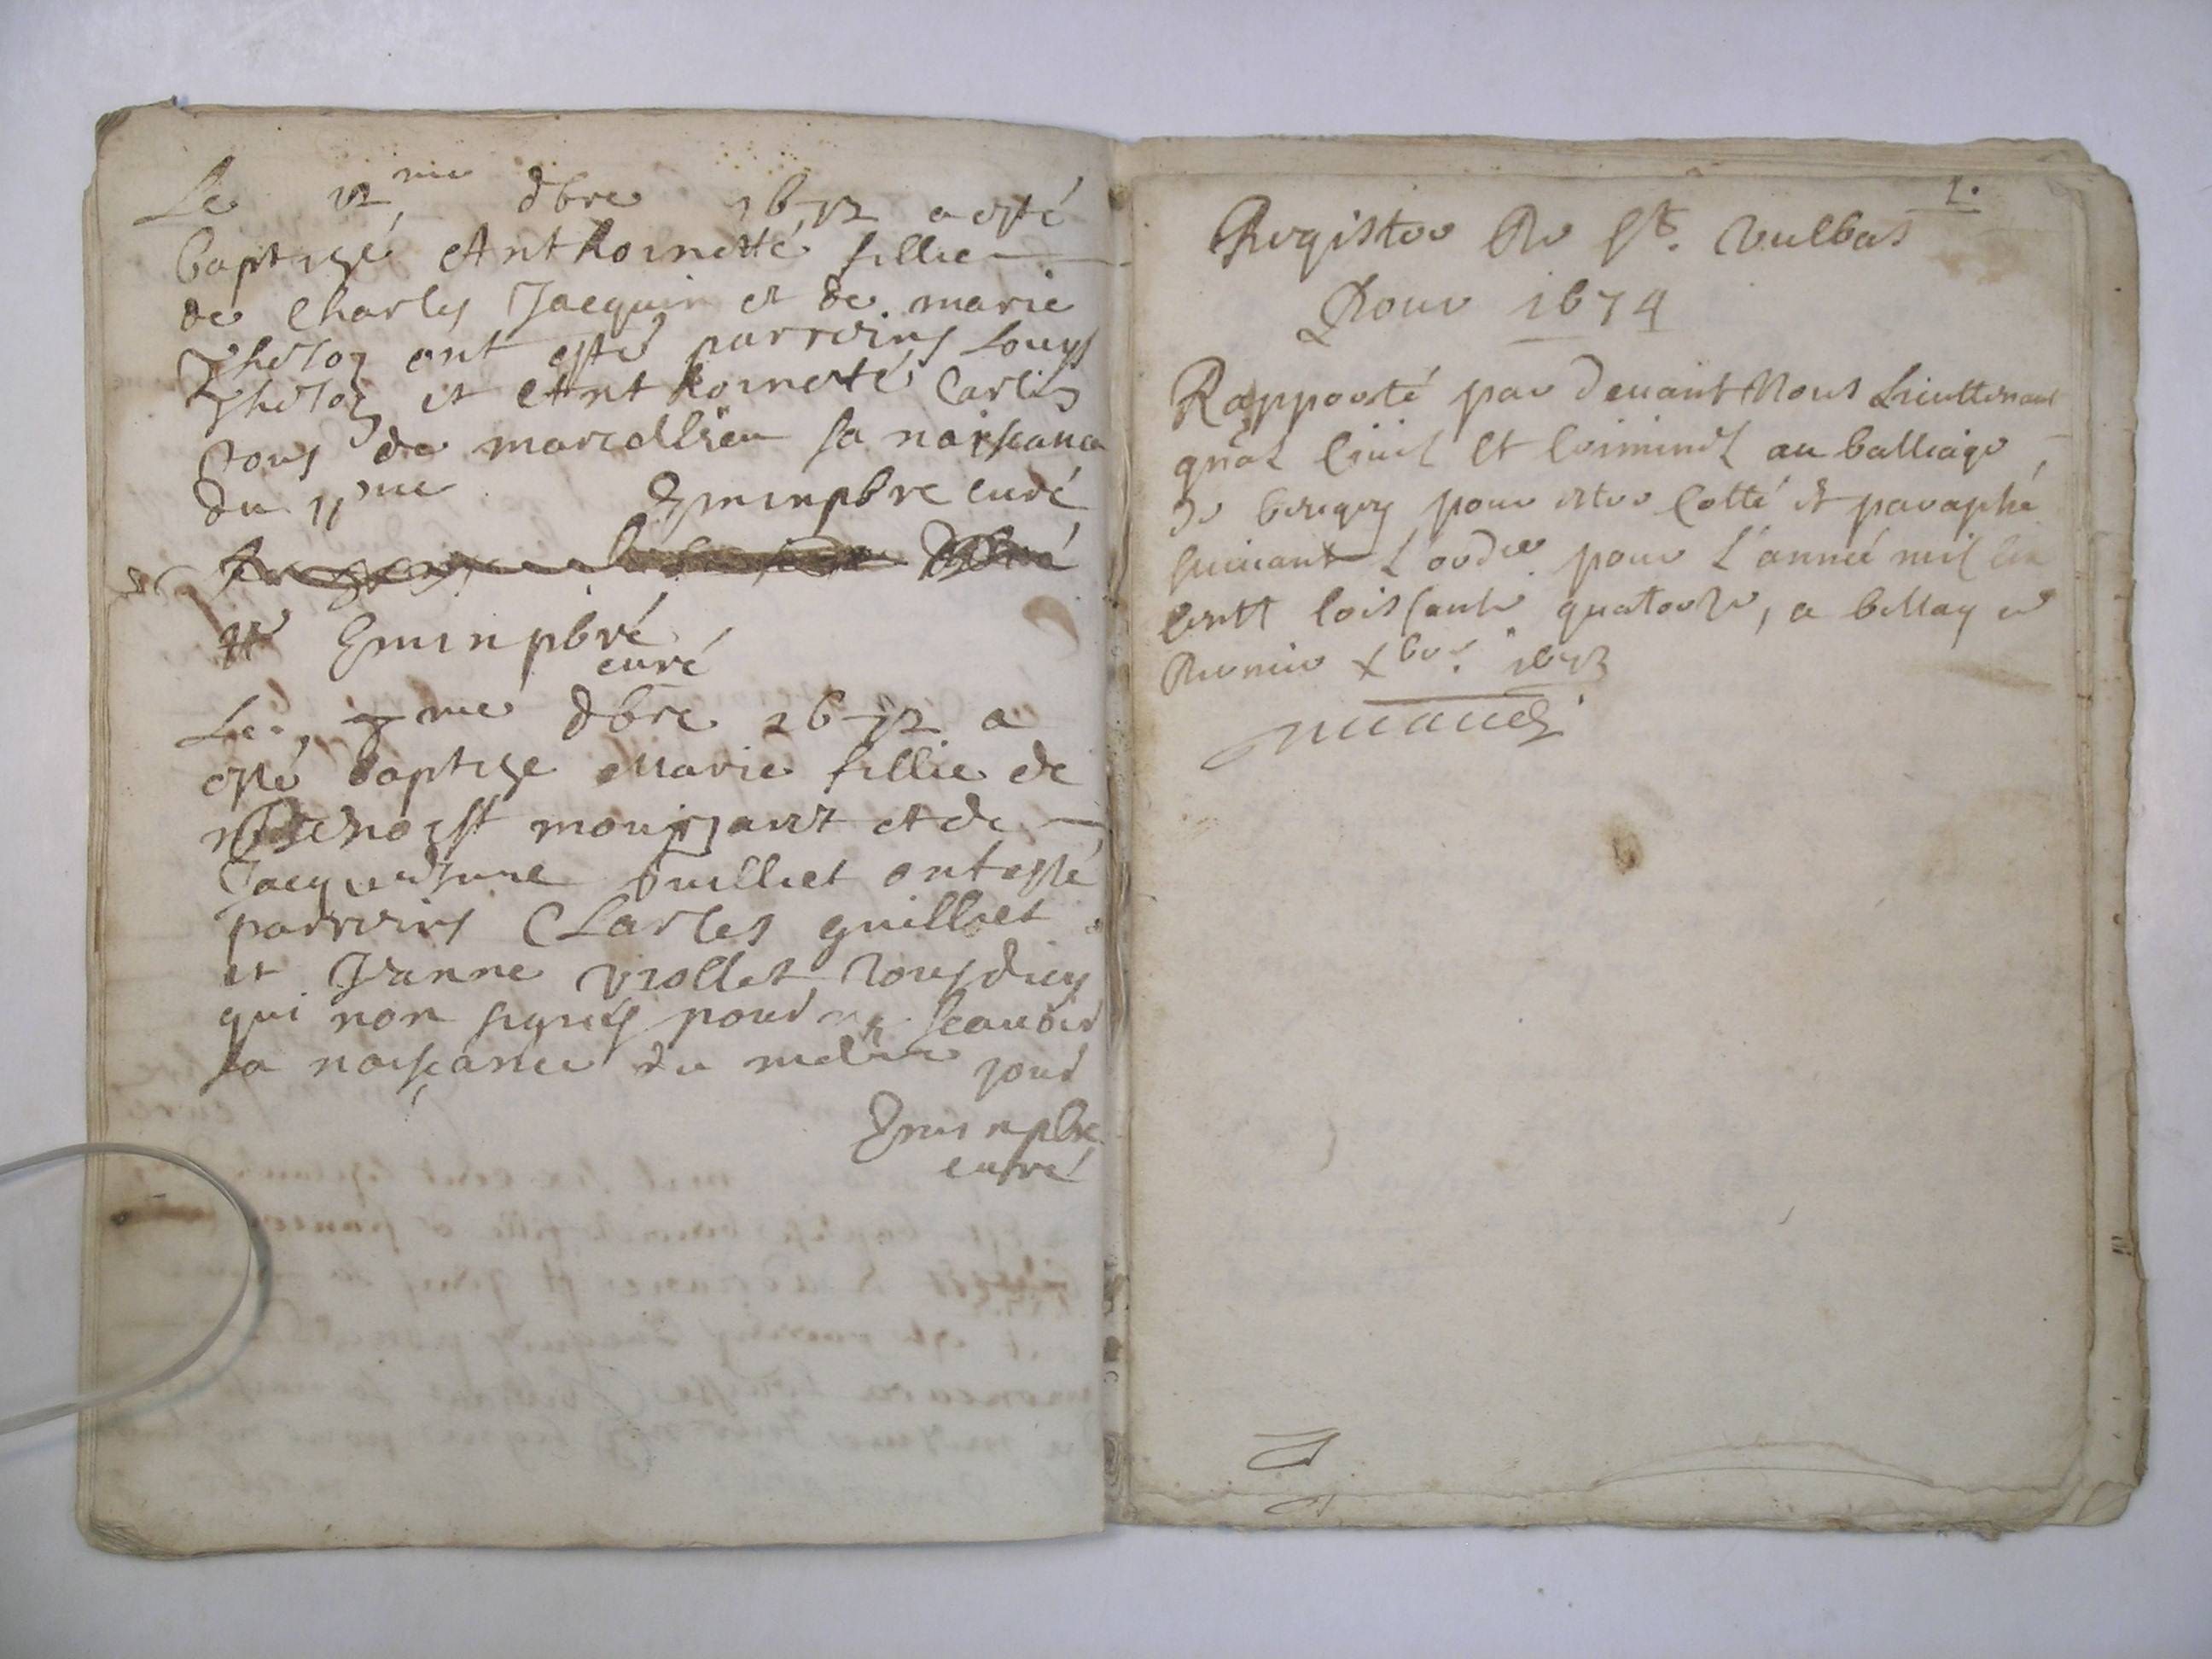 Le 12me dbre 1672 a esté
baptizé Anthoinette fillie
de Charles Jacquin et de marie
Thesoz ont esté parreins Louys
Thesoz et Anthoinette Carlin
tous de marcillieu sa naissance
du 11me pbre curé
pbre
curé
Le me dbre 1672 a
esté baptize Marie fillie de
Benoist et de
Juilliet ont esté
parreins Charles guilliet
et Jeanne Viollet tous dicy
qui non signés pour ne scauoir
sa naissance du jour
pbre
curé
1.
Registre De St. Vulbas
Pour 1674
Rapporté par deuant Nous Lieuttenant
gnal Ciuil Et Criminel au balliage
de beugey pour estre Cotté et paraphé
suiuant L'ordre pour L'année mil six
cents soissante quatorze, a bellay ce
Premier Xbre 1673